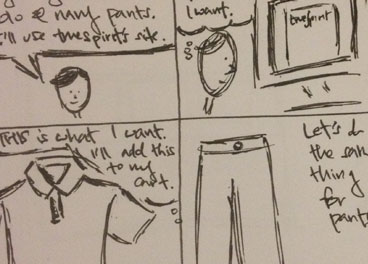 & navy pants.
I'll use truespirit's site.
I want.
truespirit
THIS is what I want.
I'll add this
to my
cart.
Let's do
the sam
thing
for
pants